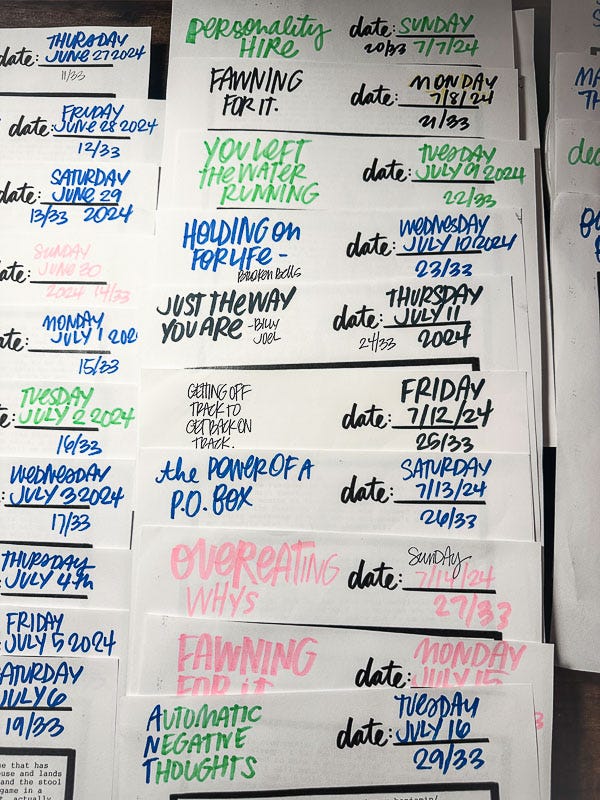 THURSDAY
date: JUNE 27 2024
11/33
FRIDAY
date: JUNE 28 2024
12/33
SATURDAY
date: JUNE 29
13/33 2024
SUNDAY
ate: JUNE 30
2024 14/33
MONDAY
ate: JULY 1 202
15/33
TUESDAY
e: JULY 2 2024
16/33
WEDNESDAY
: JULY 3 2024
17/33
THURSDAY
JULY 4th
FRIDAY
JULY 5 2024
SATURDAY
JULY 6
19/33
ue that has
ouse and lands
and the stool
game in a
actually
PERSONALITY
HIRE
date: SUNDAY
20/33 7/7/24
FAWNING
FOR IT.
MONDAY
date: 7/8/24
21/33
YOU LEFT
the WATER
RUNNING
TUESDAY
date: JULY 09 2024
22/33
HOLDING on
FOR LIFE -
Broken Bells
WEDNESDAY
date: JULY 10 2024
23/33
JUST THE WAY
YOU ARE - BILLY
JOEL
THURSDAY
date: JULY 11
24/33 2024
GETTING OFF
TRACK TO
GET BACK ON
TRACK.
FRIDAY
date: 7/12/24
25/33
the POWER OF A
P.O. BOX
SATURDAY
date: 7/13/24
26/33
OVEREATING
WHYS
Sunday
date: 7/14/24
27/33
FAWNING
FOR it
MONDAY
date: JULY 15
3
AUTOMATIC
NEGATIVE
THOUGHTS
TUESDAY
date: JULY 16
29/33
MA
TH
dec